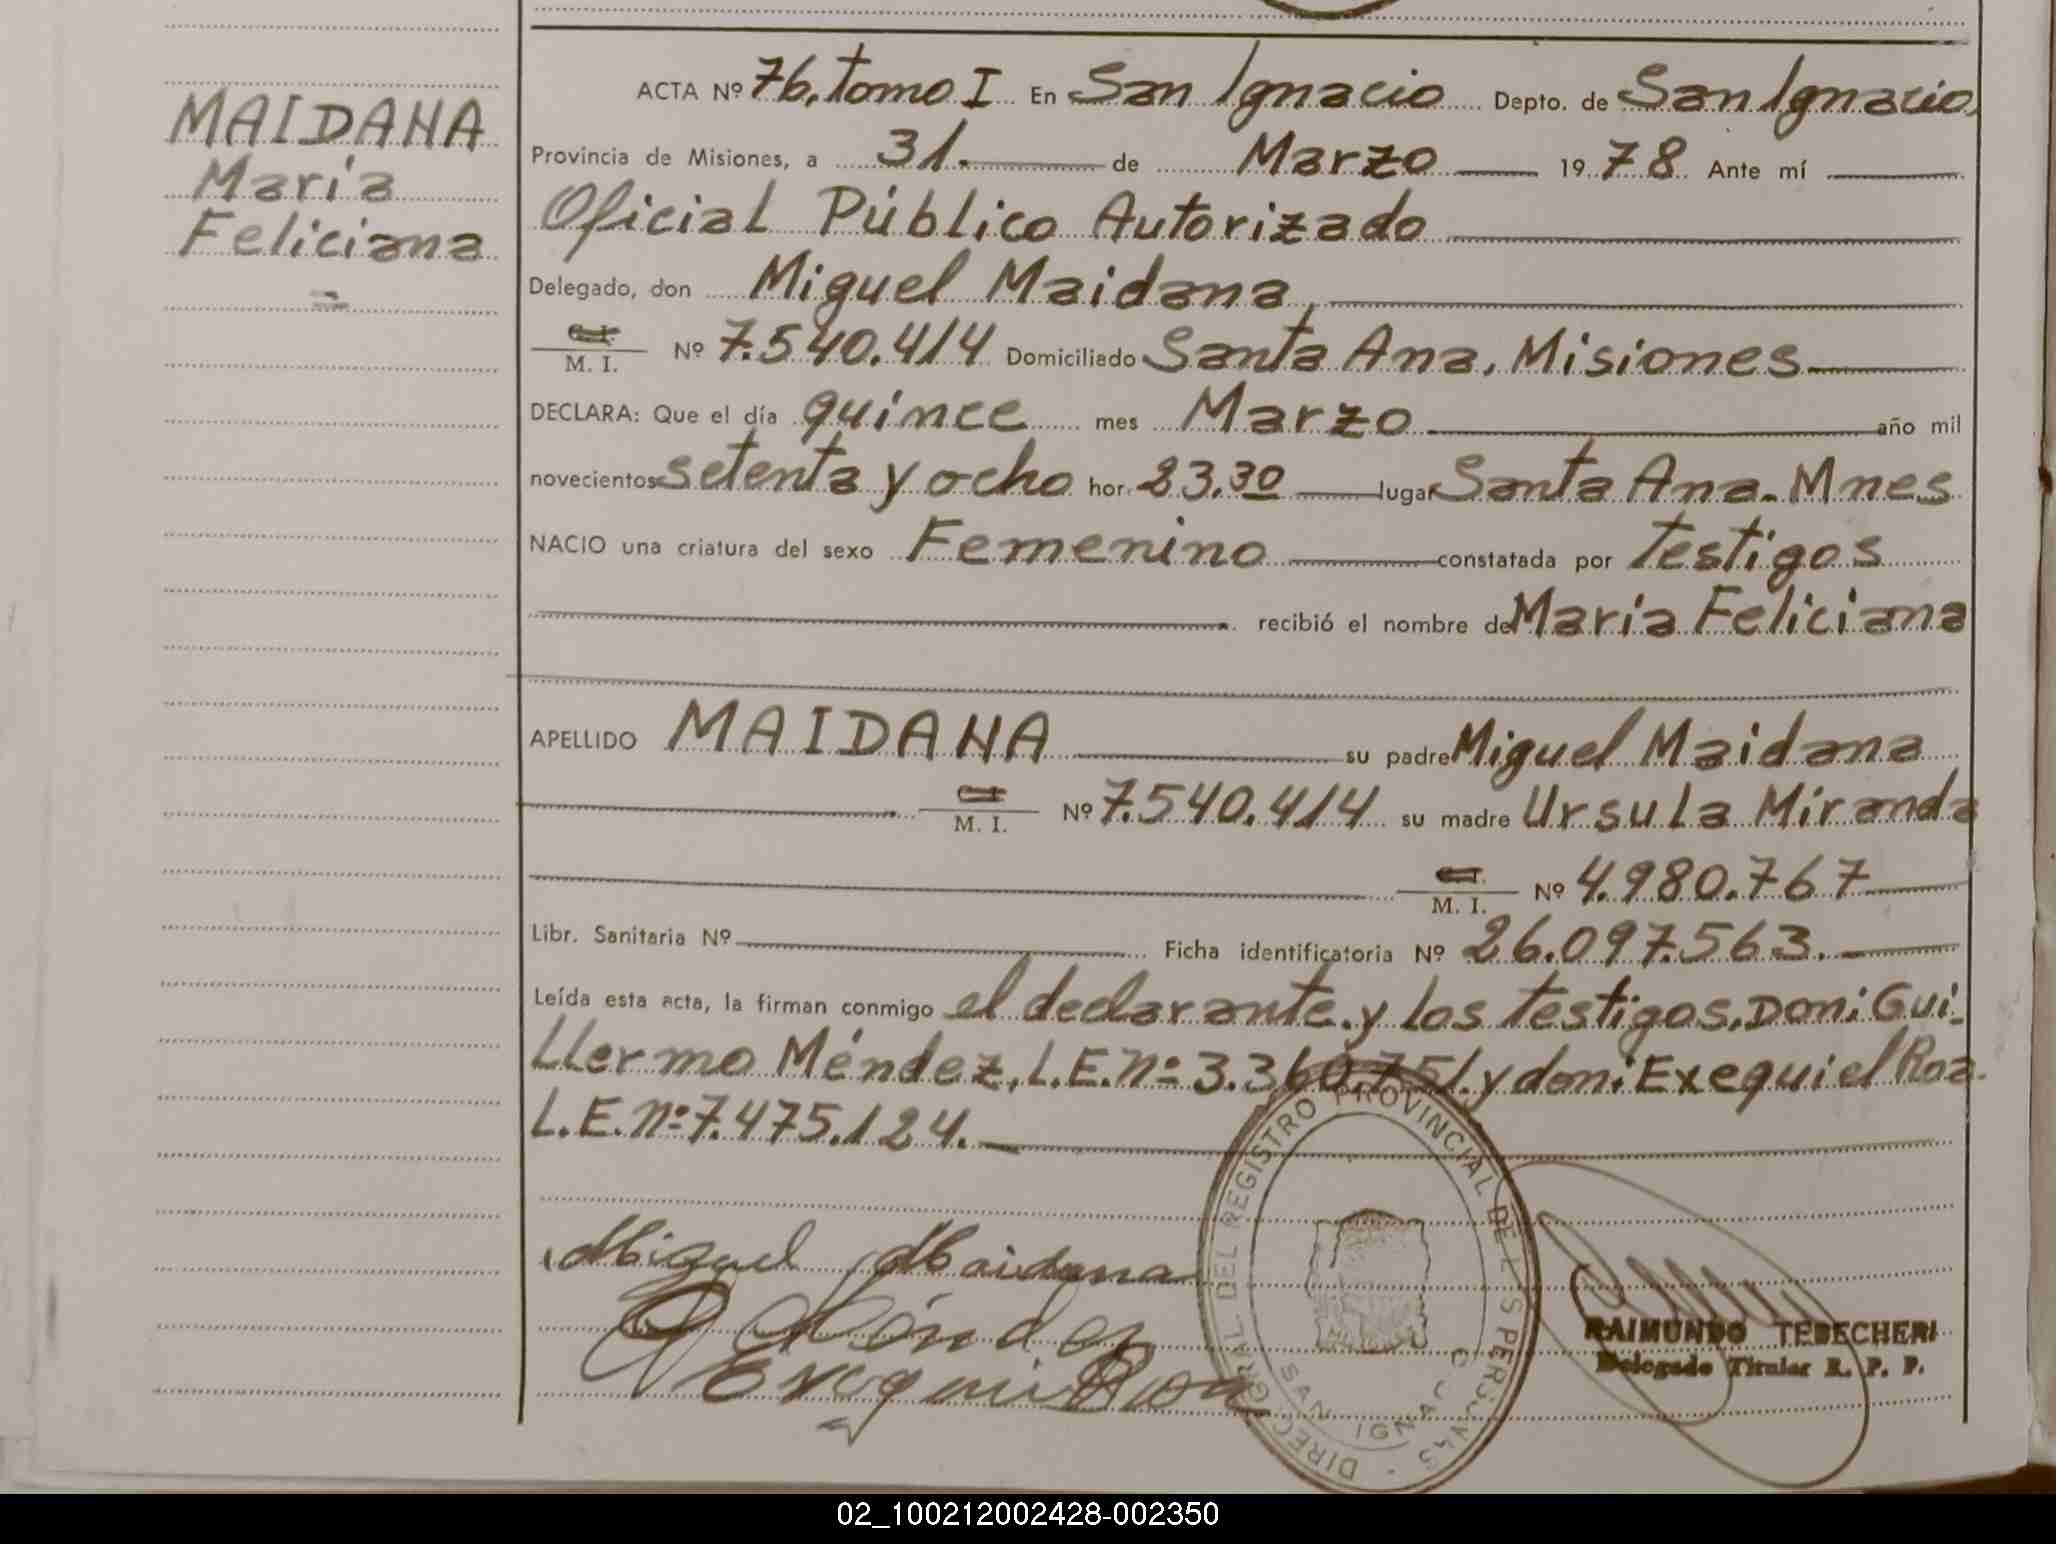 MAIDANA
María
Feliciana
ACTA Nº 76, tomo I En San Ignacio Depto. de San Ignacio,
Provincia de Misiones, a 31. de Marzo 1978 Ante mí
Oficial Público Autorizado
Delegado, don Miguel Maidana,
M. I. Nº 7.540.414 Domiciliado Santa Ana, Misiones
DECLARA: Que el día quince mes Marzo año mil
novecientos setenta y ocho hor. 23.30 lugar Santa Ana - Mnes
NACIO una criatura del sexo Femenino constatada por testigos
recibió el nombre de María Feliciana
APELLIDO MAIDANA su padre Miguel Maidana
M. I. Nº 7.540.414 su madre Ursula Miranda
M. I. Nº 4.980.767
Libr. Sanitaria Nº Ficha identificatoria Nº 26.097.563.
Leída esta acta, la firman conmigo el declarante y los testigos, Don: Gui-
llermo Méndez, L.E. nº 3.360.751. y don: Exequiel Roa.
L.E. nº 7.475.124.
Miguel Maidana
G Méndez
Exequiel Roa
DIREC. GRAL. DEL REGISTRO PROVINCIAL DE LAS PERSONAS
SAN IGNACIO
RAIMUNDO TEDECHERI
Delegado Titular R. P. P.
02_100212002428-002350